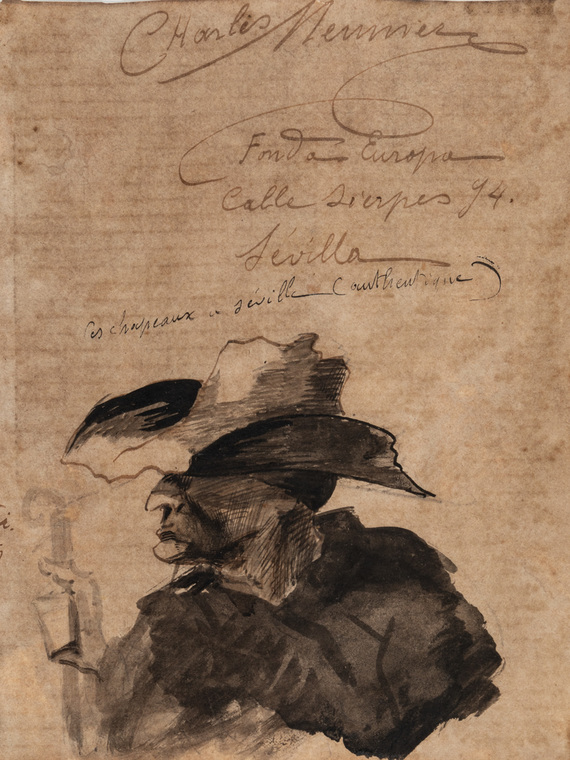 Charles Meunier
Fonda Europa
Calle Sierpes 94.
Sévilla
Les chapeaux a séville (authentique)